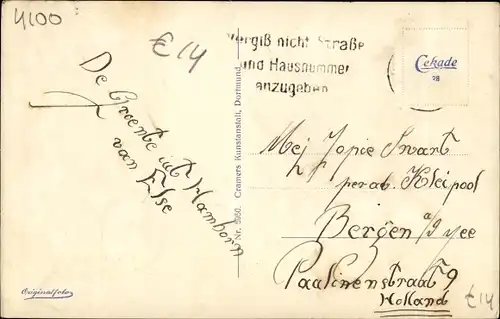 4100
€14
Vergiß nicht Straße
und Hausnummer
anzugeben
Cekade
98
De Groente uit Hamborn
van Else
Nr. 5660. Cramers Kunstanstalt, Dortmund.
Mej Jopie Swart
per ad. Kleipool
Bergen a/d Zee
Paulinenstraat 9
Holland
€14
Originalfoto